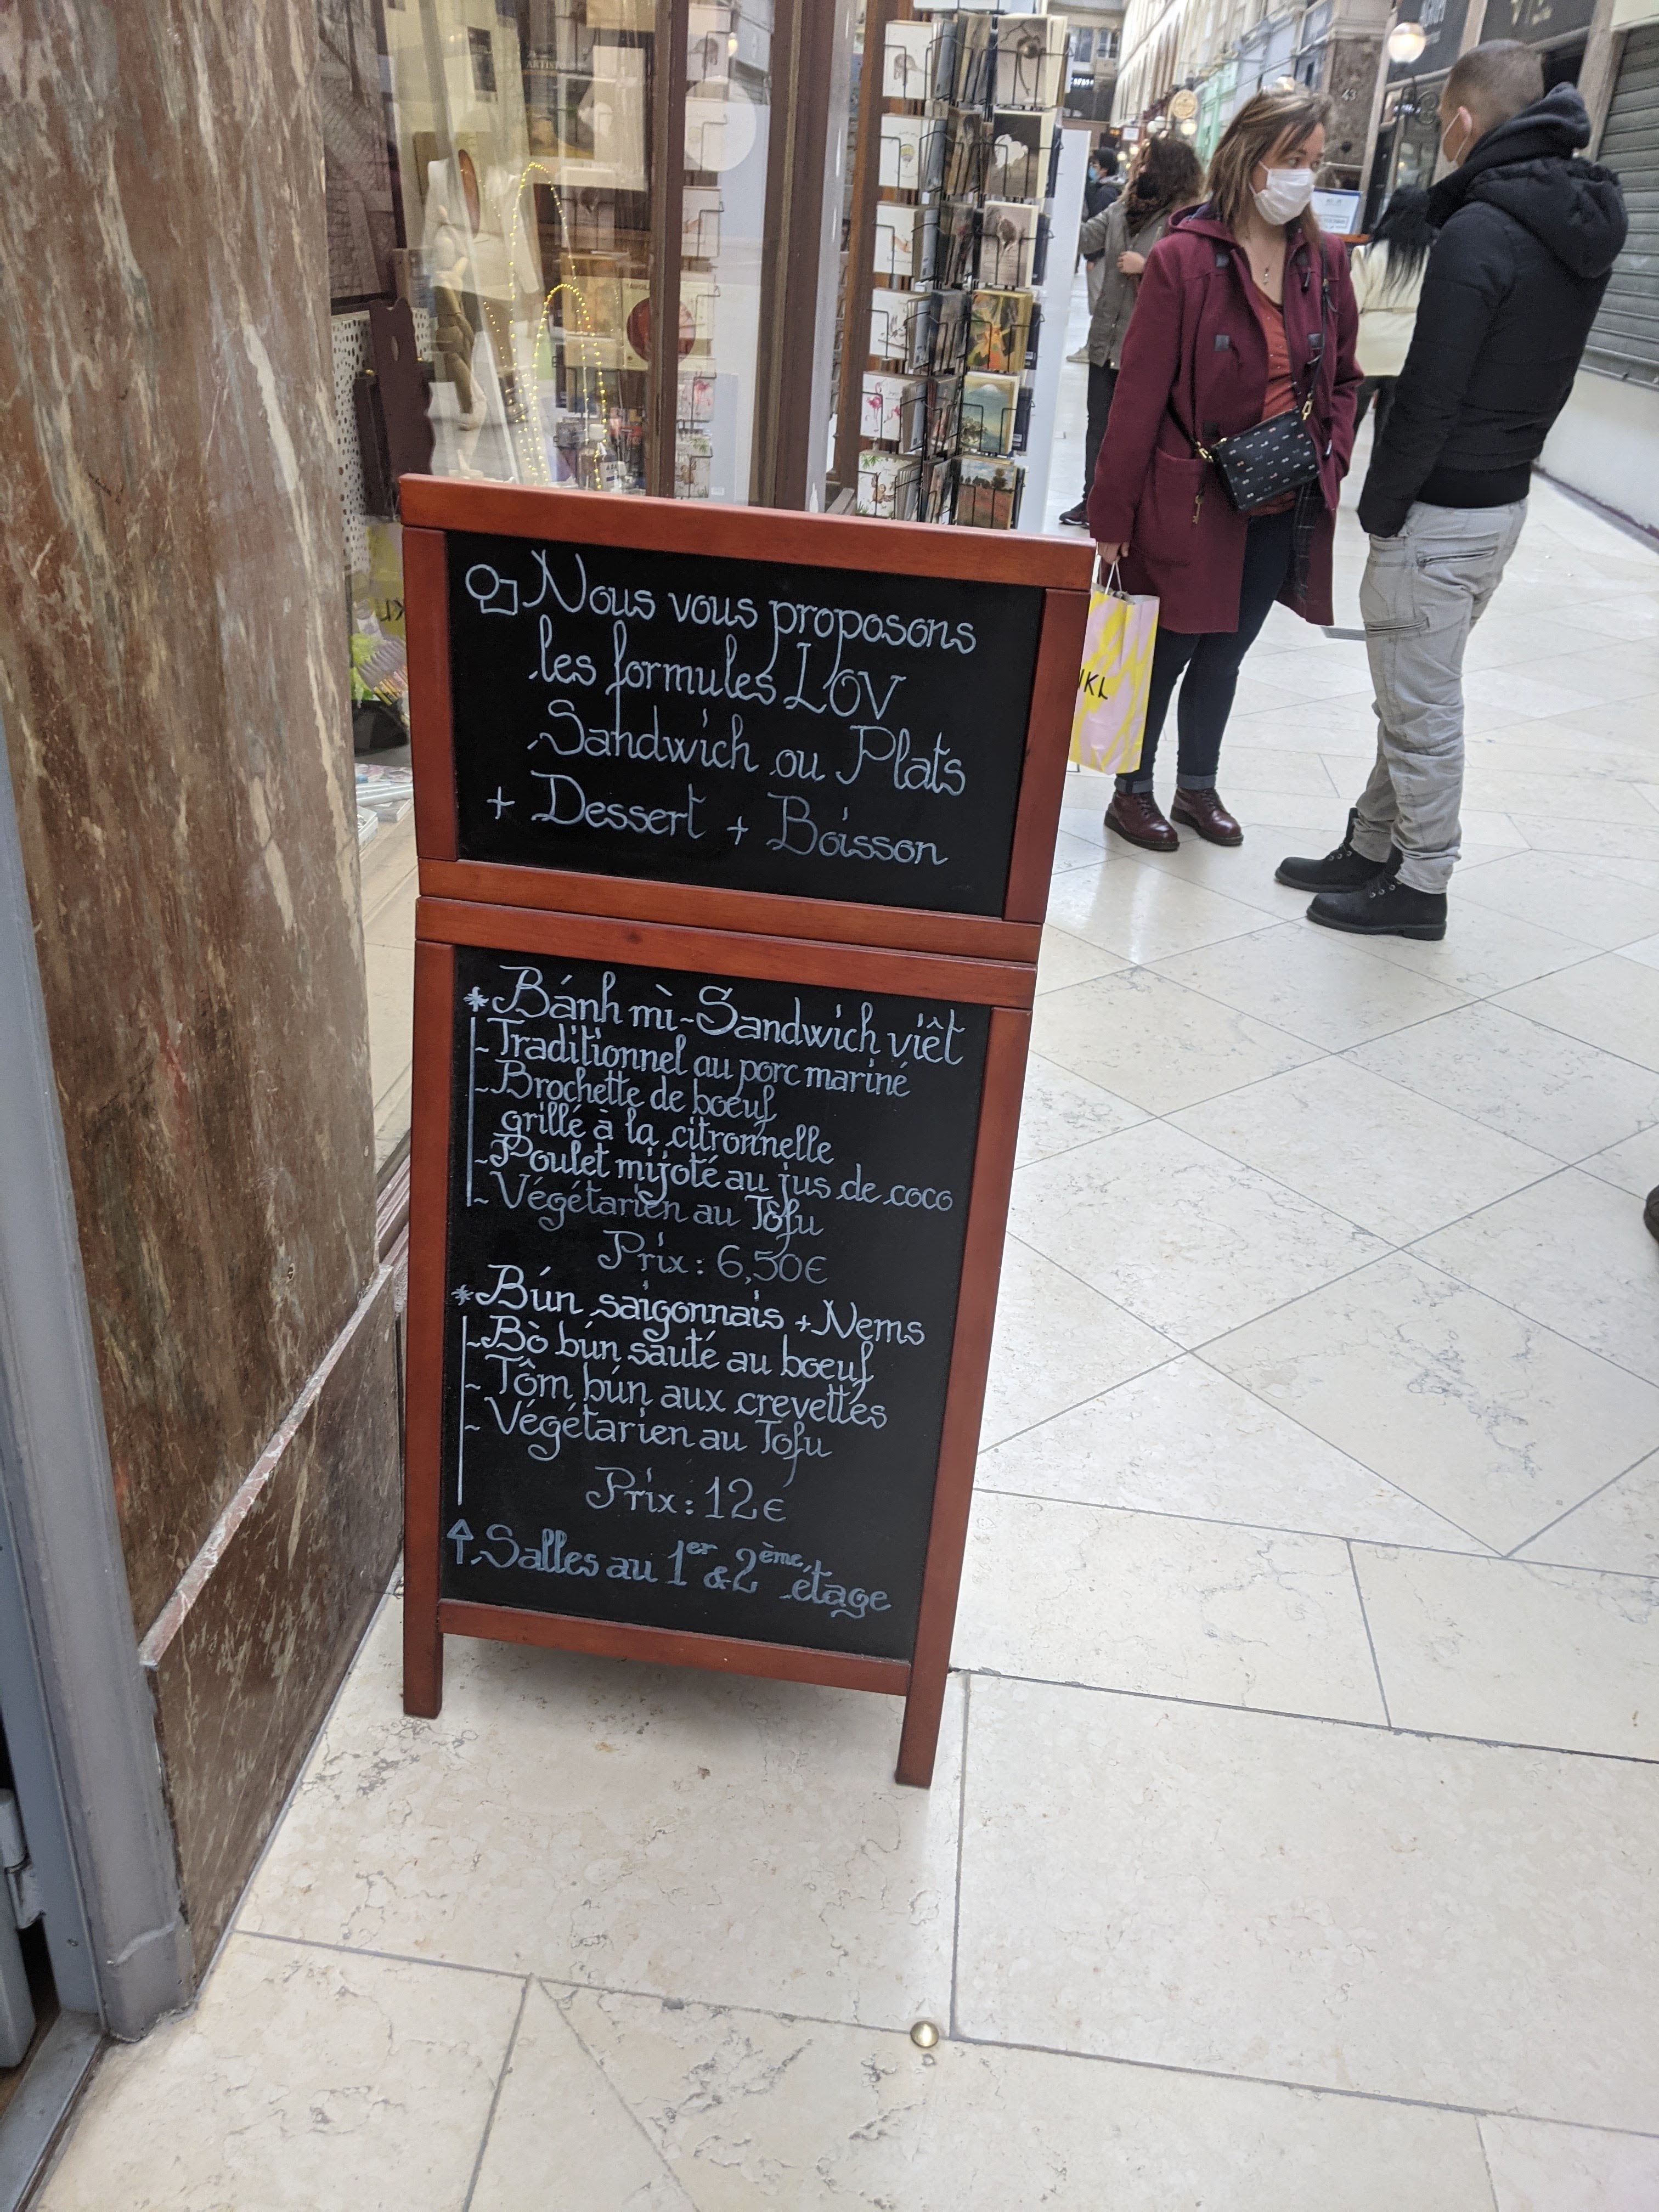 Nous vous proposons
les formules LOV
Sandwich ou Plats
+ Dessert + Boisson
* Bánh mì - Sandwich viêt
- Traditionnel au porc mariné
- Brochette de boeuf
grillé à la citronnelle
- Poulet mijoté au jus de coco
- Végétarien au Tofu
Prix : 6,50€
* Bún saigonnais + Nems
- Bò bún sauté au boeuf
- Tôm bún aux crevettes
- Végétarien au Tofu
Prix : 12€
Salles au 1er & 2ème étage
43